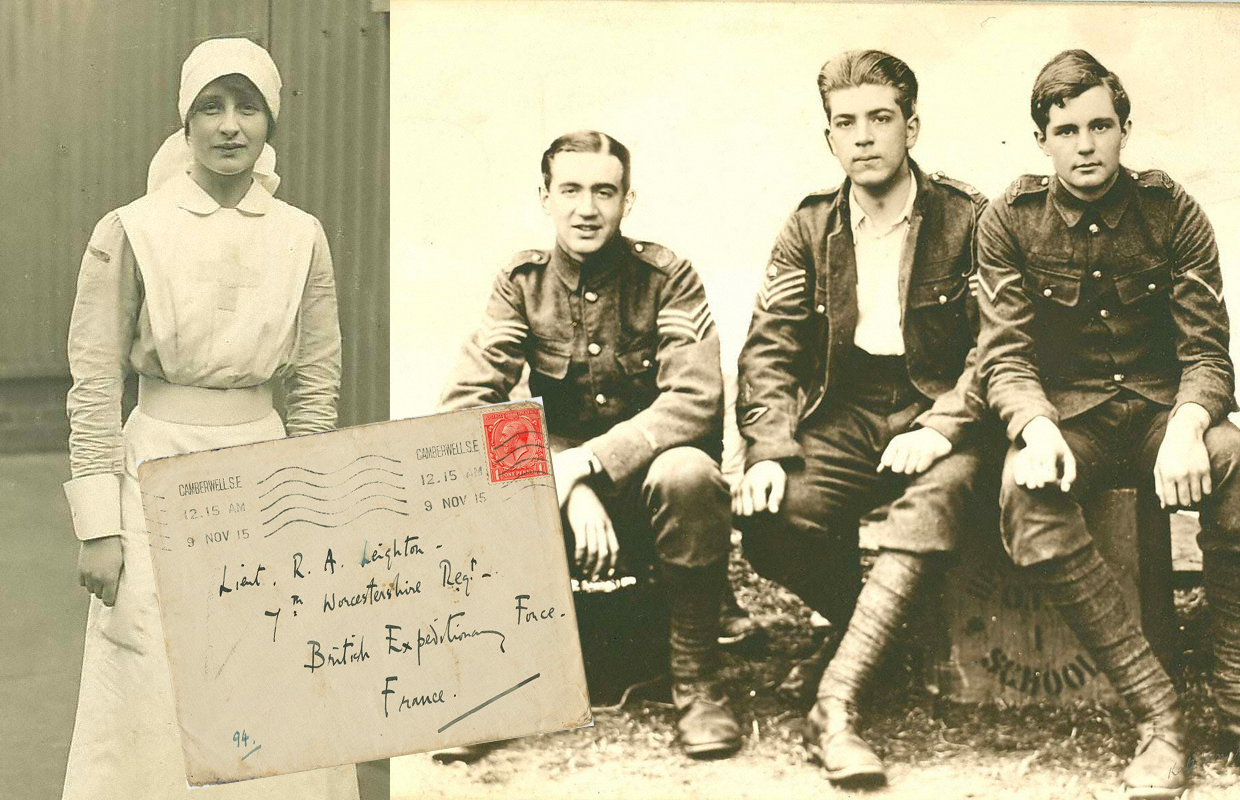 CAMBERWELL S.E
12.15 AM
9 NOV 15
CAMBERWELL S.E
12.15 AM
9 NOV 15
Lieut. R. A. Leighton -
7th Worcestershire Regt -
British Expeditionary Force -
France.
94.
SCHOOL